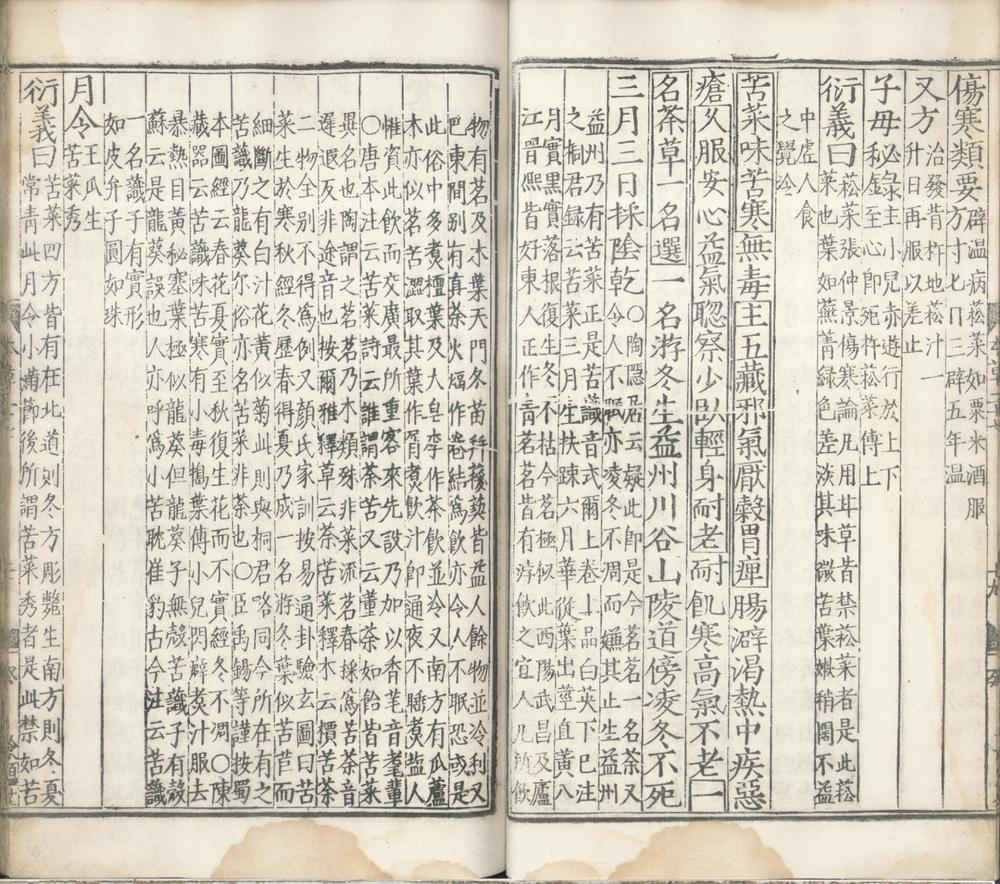 傷寒類要辟溫病菘菜如粟米酒服
方寸七日三辟五年溫
又方治發背杵地菘汁一
升日再服以差止
子母秘錄主小兒赤遊行於上下
至心即死杵菘菜傅上
衍義曰菘菜張仲景傷寒論凡用甘草皆禁菘菜者是此菘
菜也葉如蕪菁綠色差淡其味微苦葉嫩稍闊不益
中虛人食
之覺冷
苦菜味苦寒無毒主五藏邪氣厭穀胃痺腸澼渴熱中疾惡
瘡久服安心益氣聦察少臥輕身耐老耐飢寒高氣不老一
名荼草一名選一名游冬生益州川谷山陵道傍凌冬不死
三月三日採陰乾○陶隱居云疑此即是今茗茗一名荼又
令人不眠亦凌冬不凋而嫌其止生益州
益州乃有苦菜正是苦蘵音式爾上卷上品白英下巳注
之桐君録云苦菜三月生扶踈六月華從葉出莖直黃八
月實黑實落根復生冬不枯今茗極似此西陽武昌及廬
江晉熙皆好東人正作青茗茗皆有浡飲之宜人凡所飲
物有茗及木葉天門冬苗并菝葜皆益人餘物並冷利又
巴東間別有真荼火煏作卷結爲飲亦令人不眠恐或是
此俗中多煮檀葉及大皂李作茶飲並冷又南方有瓜蘆
木亦似茗苦澀取其葉作屑煮飲汁即通夜不睡煮鹽人
惟資此飲而交廣最所重客來先設乃加以香芼音耄輩
○唐本注云苦菜詩云誰謂荼苦又云堇荼如飴皆苦菜
異名也陶謂之茗茗乃木類殊非菜流茗春採爲苦荼音
遲遐反非途音也按爾雅釋草云荼苦菜釋木云檟苦荼
二物全別不得爲例又顏氏家訓按易通卦驗玄圖曰苦
菜生於寒秋經冬歷春得夏乃成一名游冬葉似苦苣而
細斷之有白汁花黃似菊此則與桐君略同今所在有之
苦蘵乃龍葵尔俗亦名苦菜非荼也○臣禹錫等謹按蜀
本圖經云春花夏實至秋復生花而不實經冬不凋○陳
藏器云苦蘵味苦寒有小毒搗葉傅小兒閃癖煮汁服去
暴熱目黃秘塞葉極似龍葵但龍葵子無殼苦蘵子有殼
蘇云是龍葵誤也人亦呼爲小苦耽崔豹古今注云苦蘵
一名蘵子有實形
如皮弁子圓如珠
月令王瓜生
苦菜秀
衍義曰苦菜四方皆有在北道則冬方彫斃生南方則冬夏
常青此月令小滿節後所謂苦菜秀者是此禁如苦